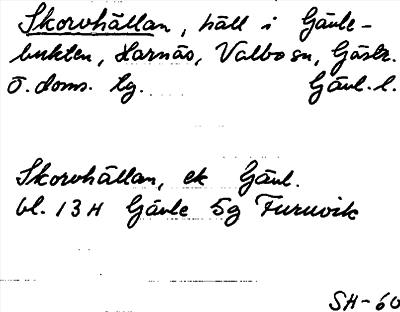 Skorvhällan, häll i Gävle-
bukten, Harnäs, Valbo sn, Gästr.
Ö. doms. lg. Gävl. l.
Skorvhällan, ek Gävl.
bl. 13 H Gävle 5g Furuvik
SH-60